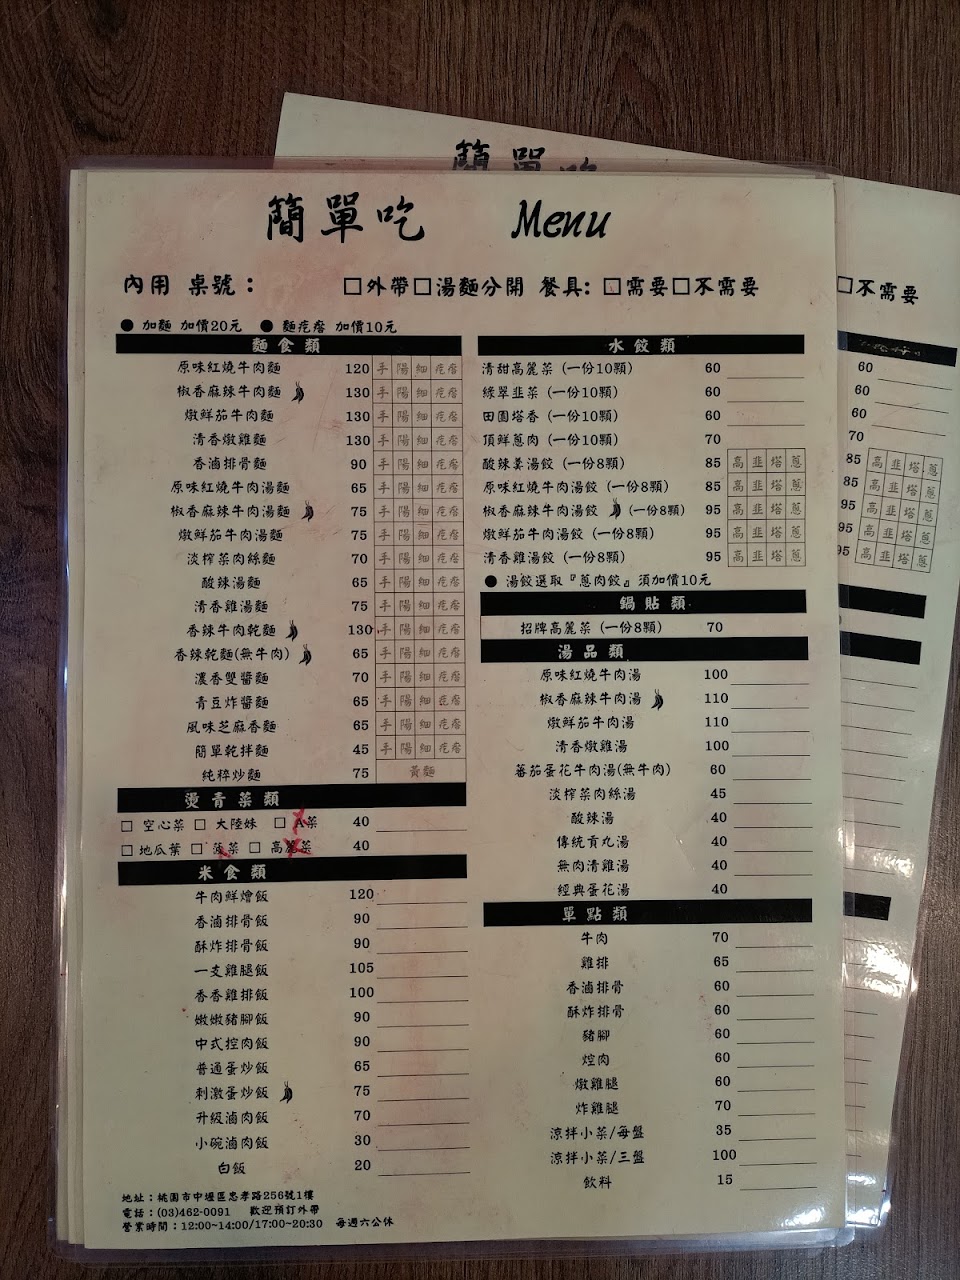 簡單吃 Menu
內用 桌號： □外帶□湯麵分開 餐具: □需要□不需要
● 加麵 加價20元 ● 麵疙瘩 加價10元
麵食類
原味紅燒牛肉麵 120 手 陽 細 疙瘩
椒香麻辣牛肉麵 130 手 陽 細 疙瘩
燉鮮茄牛肉麵 130 手 陽 細 疙瘩
清香燉雞麵 130 手 陽 細 疙瘩
香滷排骨麵 90 手 陽 細 疙瘩
原味紅燒牛肉湯麵 65 手 陽 細 疙瘩
椒香麻辣牛肉湯麵 75 手 陽 細 疙瘩
燉鮮茄牛肉湯麵 75 手 陽 細 疙瘩
淡榨菜肉絲麵 70 手 陽 細 疙瘩
酸辣湯麵 65 手 陽 細 疙瘩
清香雞湯麵 75 手 陽 細 疙瘩
香辣牛肉乾麵 130 手 陽 細 疙瘩
香辣乾麵(無牛肉) 65 手 陽 細 疙瘩
濃香雙醬麵 70 手 陽 細 疙瘩
青豆炸醬麵 65 手 陽 細 疙瘩
風味芝麻香麵 65 手 陽 細 疙瘩
簡單乾拌麵 45 手 陽 細 疙瘩
純粹炒麵 75 黃麵
燙青菜類
□ 空心菜 □ 大陸妹 □ A菜 40
□ 地瓜葉 □ 菠菜 □ 高麗菜 40
米食類
牛肉鮮燴飯 120
香滷排骨飯 90
酥炸排骨飯 90
一支雞腿飯 105
香香雞排飯 100
嫩嫩豬腳飯 90
中式控肉飯 90
普通蛋炒飯 65
刺激蛋炒飯 75
升級滷肉飯 70
小碗滷肉飯 30
白飯 20
地址：桃園市中壢區忠孝路256號1樓
電話：(03)462-0091 歡迎預訂外帶
營業時間：12:00~14:00/17:00~20:30 每週六公休
水餃類
清甜高麗菜 (一份10顆) 60
綠翠韭菜 (一份10顆) 60
田園塔香 (一份10顆) 60
頂鮮蔥肉 (一份10顆) 70
酸辣羹湯餃 (一份8顆) 85 高 韭 塔 蔥
原味紅燒牛肉湯餃 (一份8顆) 85 高 韭 塔 蔥
椒香麻辣牛肉湯餃 (一份8顆) 95 高 韭 塔 蔥
燉鮮茄牛肉湯餃 (一份8顆) 95 高 韭 塔 蔥
清香雞湯餃 (一份8顆) 95 高 韭 塔 蔥
● 湯餃選取『蔥肉餃』須加價10元
鍋貼類
招牌高麗菜 (一份8顆) 70
湯品類
原味紅燒牛肉湯 100
椒香麻辣牛肉湯 110
燉鮮茄牛肉湯 110
清香燉雞湯 100
蕃茄蛋花牛肉湯(無牛肉) 60
淡榨菜肉絲湯 45
酸辣湯 40
傳統貢丸湯 40
無肉清雞湯 40
經典蛋花湯 40
單點類
牛肉 70
雞排 65
香滷排骨 60
酥炸排骨 60
豬腳 60
焢肉 60
燉雞腿 60
炸雞腿 70
涼拌小菜/每盤 35
涼拌小菜/三盤 100
飲料 15
簡單吃
□不需要
60
60
60
70
85 高 韭 塔 蔥
85 高 韭 塔 蔥
95 高 韭 塔 蔥
95 高 韭 塔 蔥
95 高 韭 塔 蔥